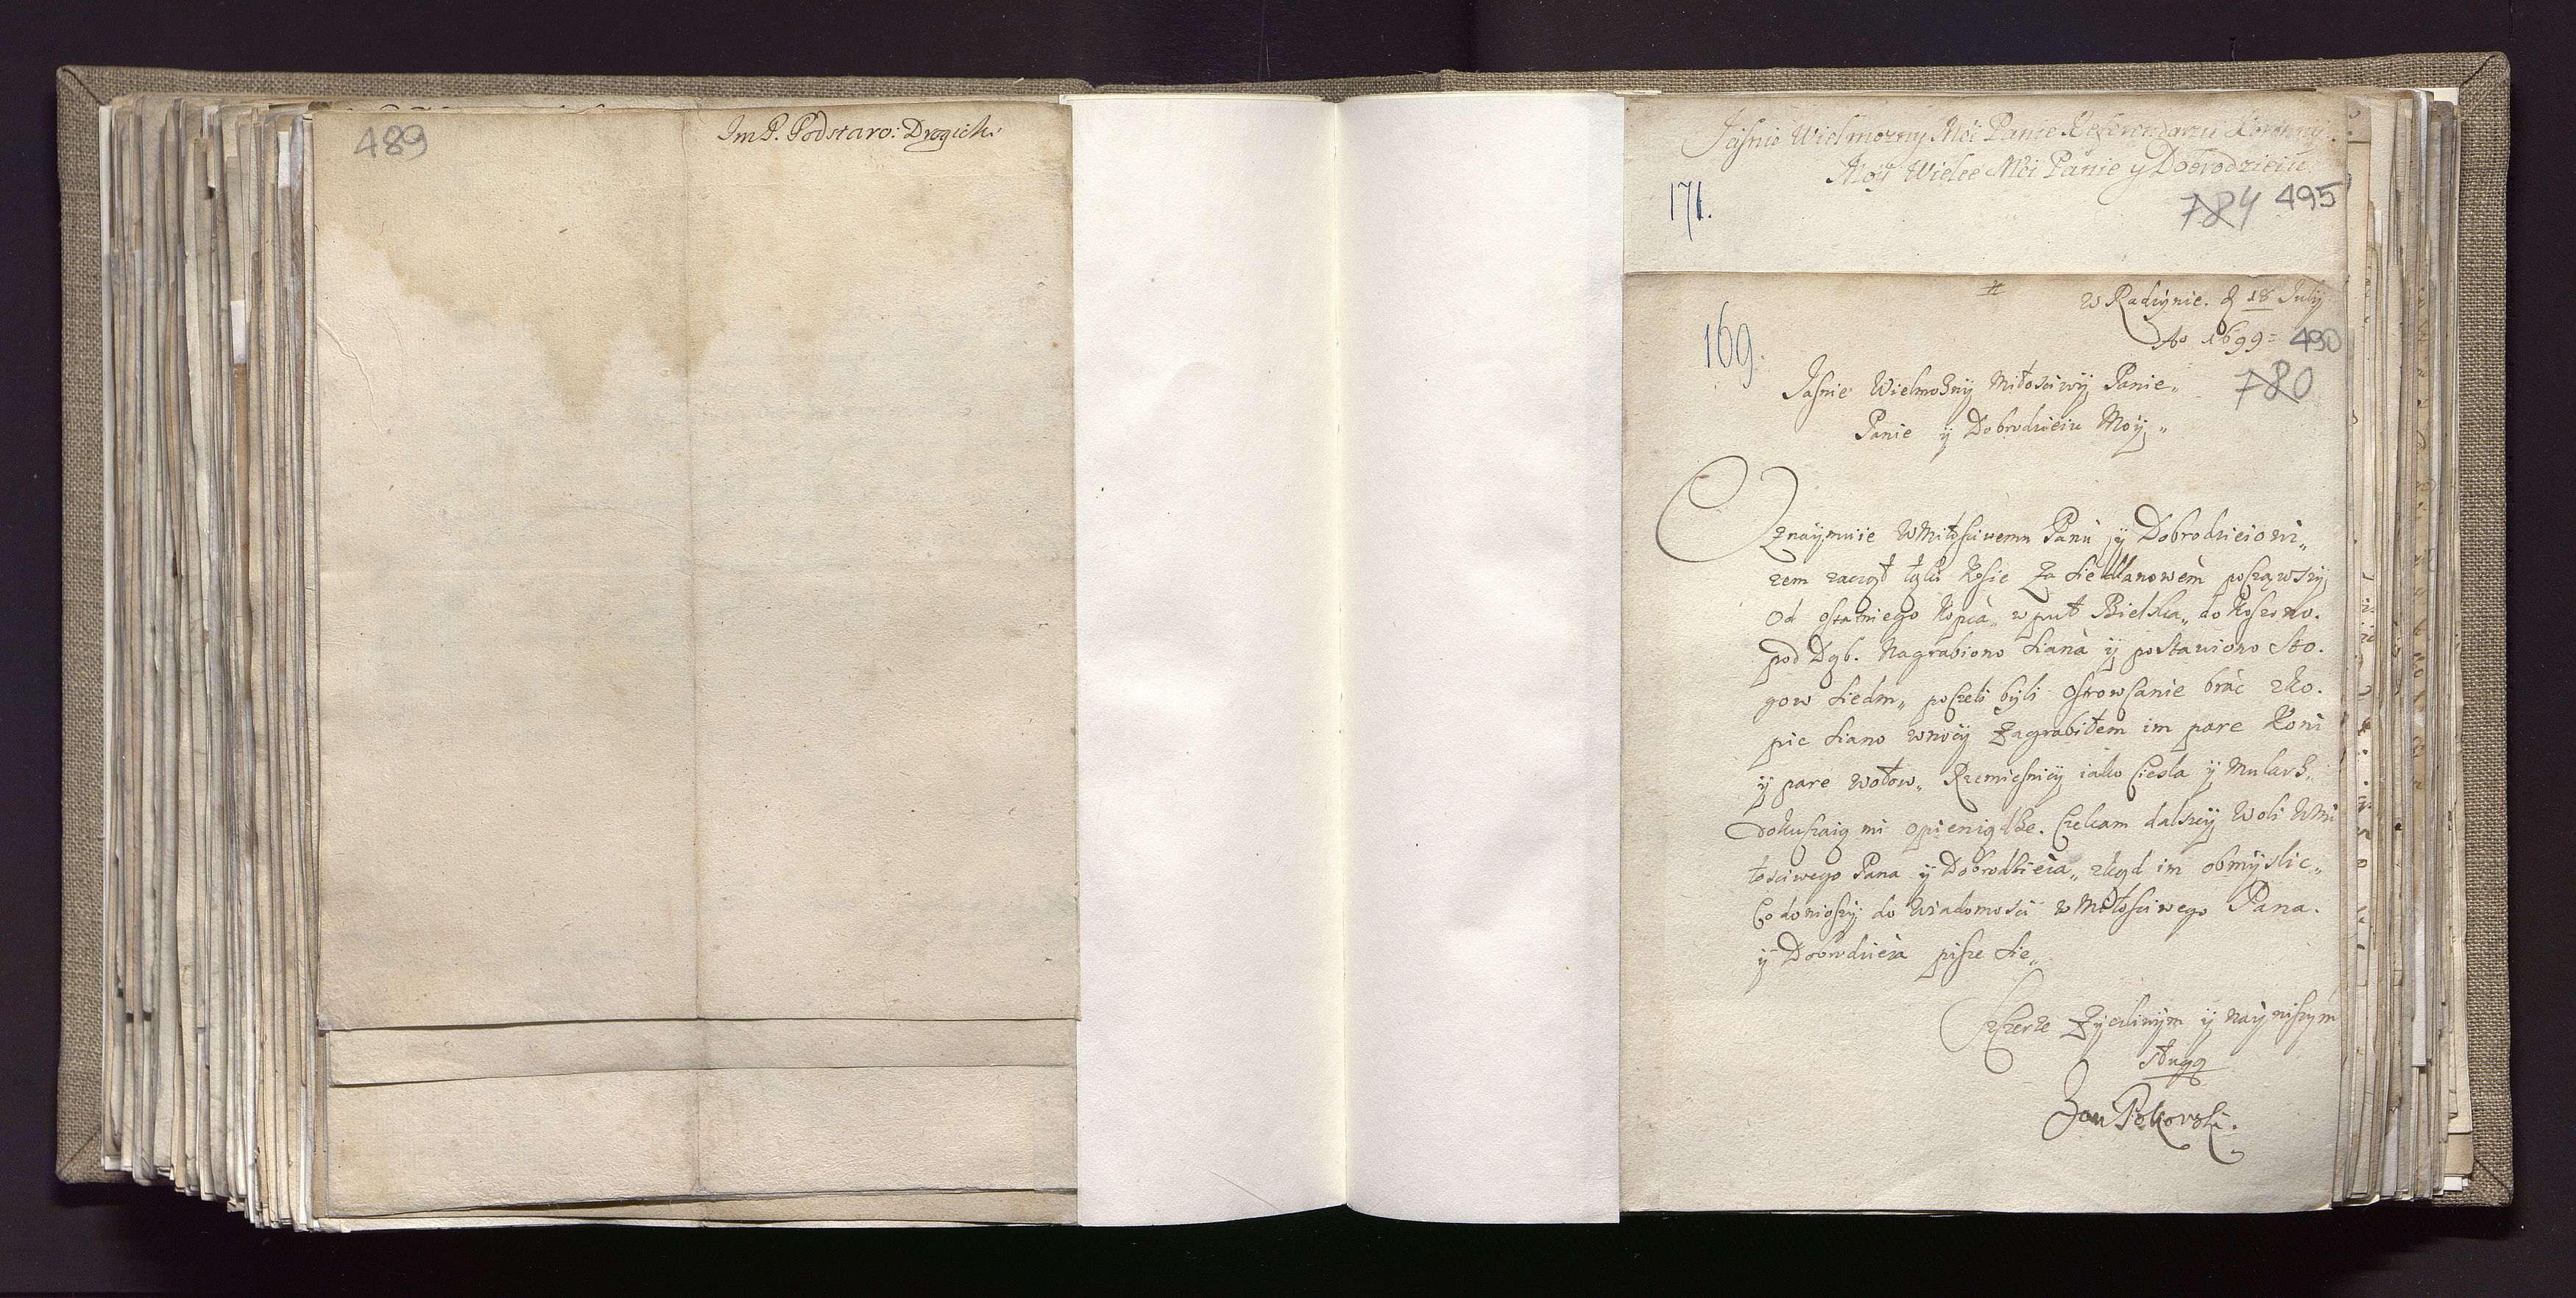 489
Im P. Podstaro: Drogick:
Jaśnie Wielmozny Mći Panie Referendarzu Koronny.
Moy Wielce Mći Panie y Dobrodzieiu
171.
784 495
w Radzynie. d 18 July
Ao 1699 = 490
169.
780
Jaśnie Wielmożny Miłosciwÿ Panie„
Panie ÿ Dobrodzieiu Moÿ„
Oznaÿmuie WMiłosciwemu Panu ÿ Dobrodzieiowi„
zem zaczął łąki kosic za Siedlanowem począwszÿ
od ostatniego kopca„ wpuł Bielska„ do koszono.
pod Dąb. Nagrabiono Siana ÿ postawiono Sto.
gow Siedm„ poczeli bÿli Ostrowcanie brac zko.
pic Siano wnocÿ zagrabiłem im pare Koni
ÿ pare wołow„ Rzemiesnicÿ iako Ciesla ÿ Mularz„
dokuczaią mi opieniądze. Czekam dalszeÿ woli WMi
łosciwego Pana ÿ Dobrodzieia„ zkąd im obmÿslic„
Co doniosszÿ do Wiadomosci WMiłosciwego Pana.
ÿ Dobrodzieia pisze Sie„
Szczerze Zÿczliwÿm ÿ Naÿniszÿm
sługą
Jan